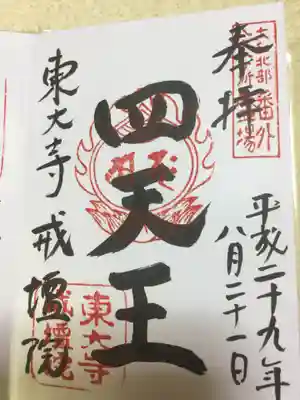 奉拝
平成二十九年
八月二十一日
四天王
東大寺戒壇院
東大寺
戒壇院